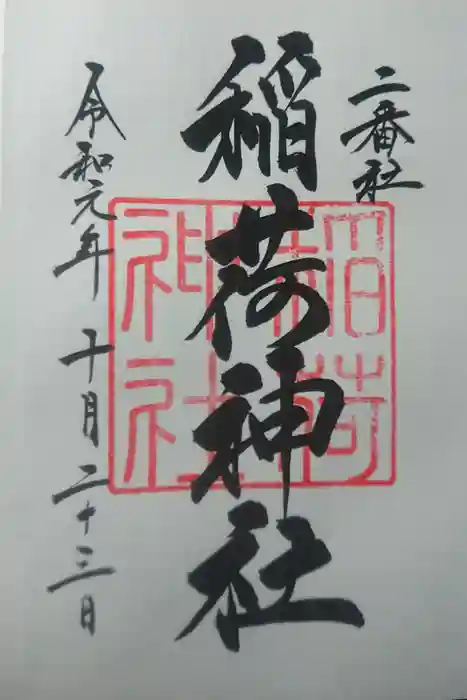 二番社
稲荷神社
稲荷
神社
令和元年 十月二十三日